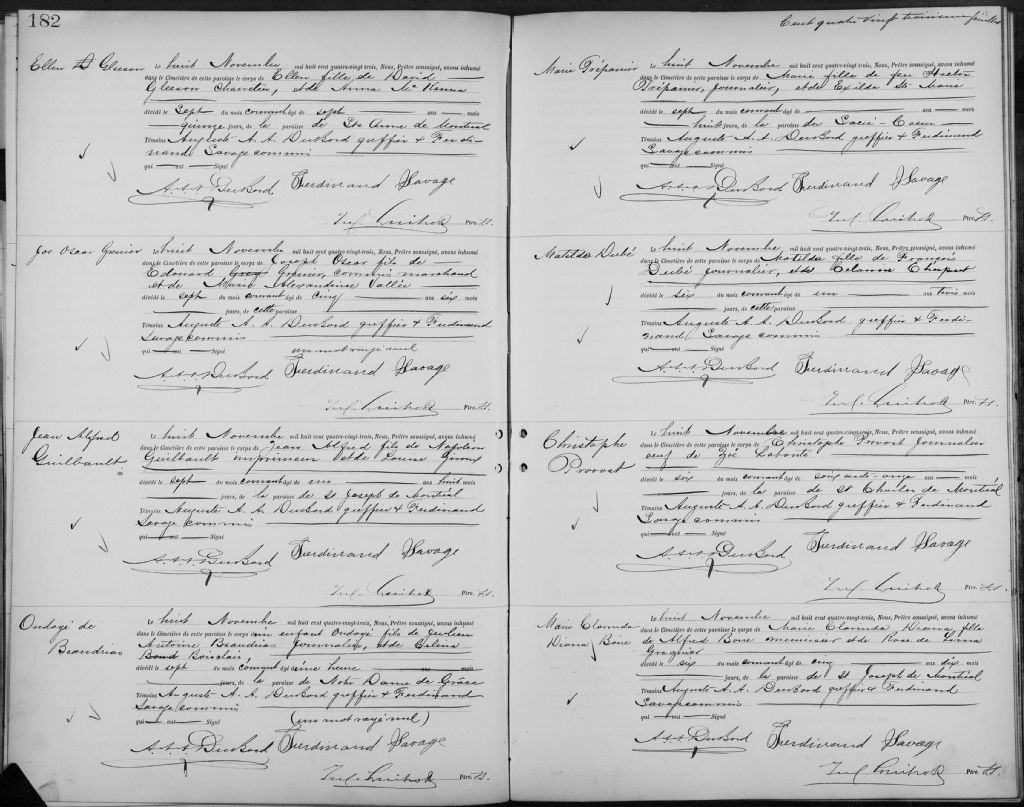 182
Ellen Gleeson
Le huit Novembre mil huit cent quatre-vingt-trois, Nous, Prêtre soussigné, avons inhumé
dans le Cimetière de cette paroisse le corps de Ellen fille de David
Gleeson Chandler, et de Anna McKenna
décédé le sept du mois courant âgé de sept ans mois
quinze jours, de la paroisse de Ste Anne de Montréal
Témoins Auguste A. A. DenBord greffier & Ferdi-
nand Savage commis
qui ont Signé
A. A. A. DenBord Ferdinand Savage
Ptre. S.S.
Jos Oscar Grenier
Le huit Novembre mil huit cent quatre-vingt-trois, Nous, Prêtre soussigné, avons inhumé
dans le Cimetière de cette paroisse le corps de Joseph Oscar fils de
Edouard Grenier, commis marchand
et de Marie Alexandrine Vallée
décédé le sept du mois courant âgé de cinq ans six mois
jours, de cette paroisse
Témoins Auguste A. A. DenBord greffier & Ferdinand
Savage commis
qui ont Signé un mot rayé nul
A. A. A. DenBord Ferdinand Savage
Ptre. S.S.
Jean Alfred
Guilbault
Le huit Novembre mil huit cent quatre-vingt-trois, Nous, Prêtre soussigné, avons inhumé
dans le Cimetière de cette paroisse le corps de Jean Alfred fils de Napoléon
Guilbault imprimeur et de Louise Giroux
décédé le sept du mois courant âgé de un ans huit mois
jours, de la paroisse de St Joseph de Montréal
Témoins Auguste A. A. DenBord greffier & Ferdinand
Savage commis
qui ont Signé
A. A. A. DenBord Ferdinand Savage
Ptre. S.S.
Ondoyé de
Beaudrias
Le huit Novembre mil huit cent quatre-vingt-trois, Nous, Prêtre soussigné, avons inhumé
dans le Cimetière de cette paroisse le corps de un enfant Ondoyé fils de
Antoine Beaudrias journalier, et de Celina
Boisclais
décédé le sept du mois courant âgé d'une heure ans mois
jours, de la paroisse de Notre Dame de Grâce
Témoins Auguste A. A. DenBord greffier & Ferdinand
Savage commis
qui ont Signé (un mot rayé nul)
A. A. A. DenBord Ferdinand Savage
Ptre. S.S.
Cent quatre vingt troisième feuillet
Marie Trépanier
Le huit Novembre mil huit cent quatre-vingt-trois, Nous, Prêtre soussigné, avons inhumé
dans le Cimetière de cette paroisse le corps de Marie fille de feu
Trépanier, journalier, et de Exilda Ste Marie
décédé le sept du mois courant âgé de ans mois
huit jours, de la paroisse du Sacré-Coeur
Témoins Auguste A. A. DenBord greffier & Ferdinand
Savage commis
qui ont Signé
A. A. A. DenBord Ferdinand Savage
Ptre. S.S.
Matilda Dubé
Le huit Novembre mil huit cent quatre-vingt-trois, Nous, Prêtre soussigné, avons inhumé
dans le Cimetière de cette paroisse le corps de Matilda fille de François
Dubé journalier, et de
décédé le six du mois courant âgé de un ans trois mois
jours, de cette paroisse
Témoins Auguste A. A. DenBord greffier & Ferdi-
nand Savage commis
qui ont Signé
A. A. A. DenBord Ferdinand Savage
Ptre. S.S.
Christophe
Provost
Le huit Novembre mil huit cent quatre-vingt-trois, Nous, Prêtre soussigné, avons inhumé
dans le Cimetière de cette paroisse le corps de Christophe Provost journalier
veuf de Zoé Labonté
décédé le six du mois courant âgé de soixante-onze ans mois
jours, de la paroisse de St Charles de Montréal
Témoins Auguste A. A. DenBord greffier & Ferdinand
Savage commis
qui ont Signé
A. A. A. DenBord Ferdinand Savage
Ptre. S.S.
Marie Clorinda
Diana Boire
Le huit Novembre mil huit cent quatre-vingt-trois, Nous, Prêtre soussigné, avons inhumé
dans le Cimetière de cette paroisse le corps de Marie Clorinda Diana fille
de Alfred Boire menuisier et de Rose de Lima
Gregnier
décédé le six du mois courant âgé de cinq ans six mois
jours, de la paroisse de St Joseph de Montréal
Témoins Auguste A. A. DenBord greffier & Ferdinand
Savage commis
qui ont Signé
A. A. A. DenBord Ferdinand Savage
Ptre. S.S.